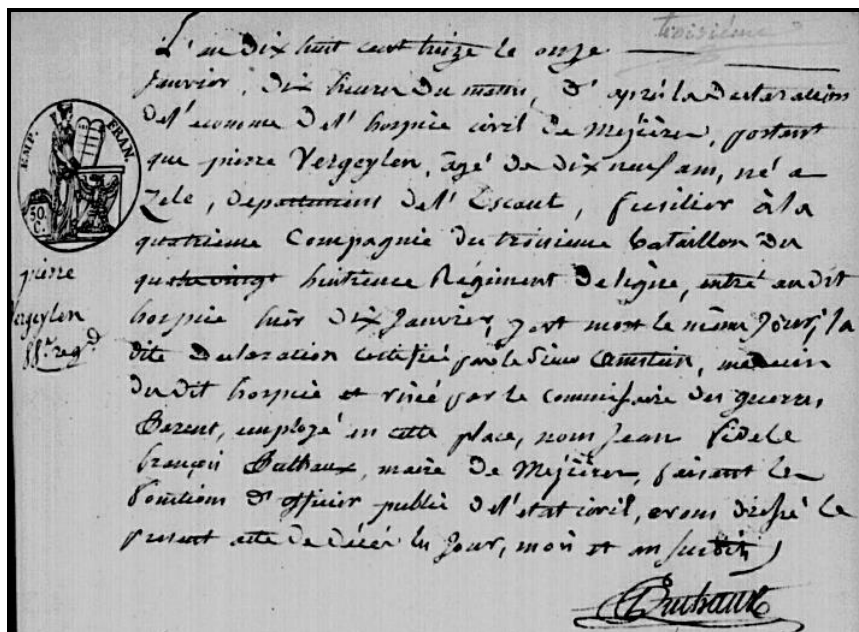 troisième
L'an dix huit cent treize le onze
Janvier, dix heures du matin, D'après la Declaration
de l'econome de l'hospice civil de Mézières, portant
que pierre Vergeylen, âgé de dix neuf ans, né a
Zele, departement de l'Escaut, fusilier à la
quatrieme Compagnie du troisieme bataillon du
quatrevingt huitieme Régiment de ligne, entré au dit
hospice hier dix Janvier, y est mort le même Jour, la
dite Declaration certifié par le Sieur, medecin
du dit hospice et visé par le commissaire des guerres
Parent, employé en cette place, nous Jean fidele
françois Buthaux, maire de Mézières, faisant les
fonctions d'officier public de l'état civil, avons dressé le
present acte de décès les Jour, mois et an susdits
Buthaux
EMP. FRAN.
50.
C.
pierre
Vergeylen
88e regt